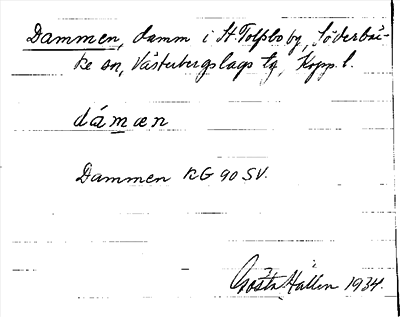 Dammen, damm i St. Tolfsbo by, Söderbär-
ke sn, Västerbergslags tg, Kopp. l.
dámæn
Dammen KG 90 SV.
Gösta Hallén 1934.